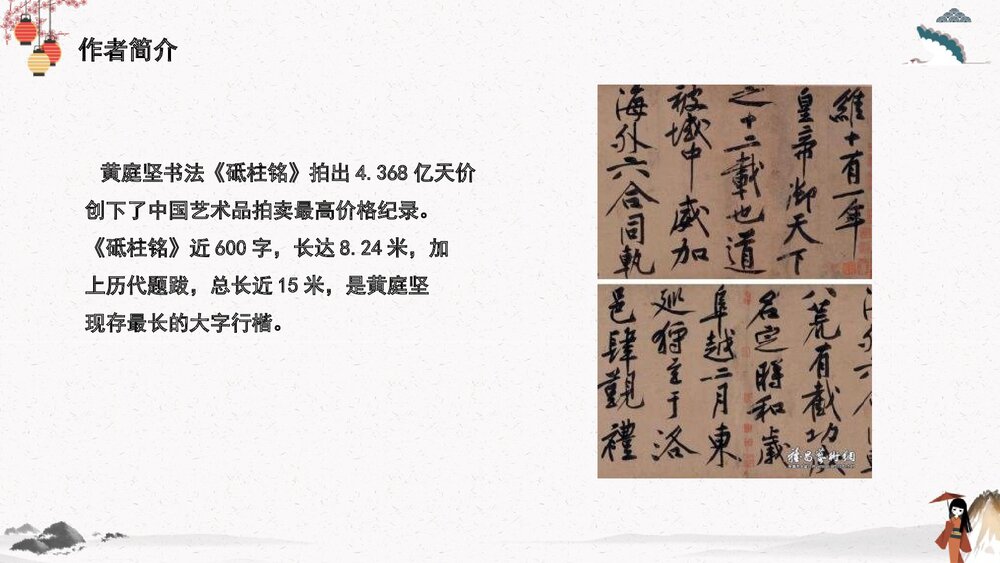 作者简介
黄庭坚书法《砥柱铭》拍出 4.368 亿天价
创下了中国艺术品拍卖最高价格纪录。
《砥柱铭》近 600 字，长达 8.24 米，加
上历代题跋，总长近 15 米，是黄庭坚
现存最长的大字行楷。
維十有一年
皇帝御天下
之十二載也道
被域中威加
海外六合同軌
八荒有截功成
名定時和歲
阜越二月東
巡狩至于洛
邑肆覲禮
雅昌藝術網